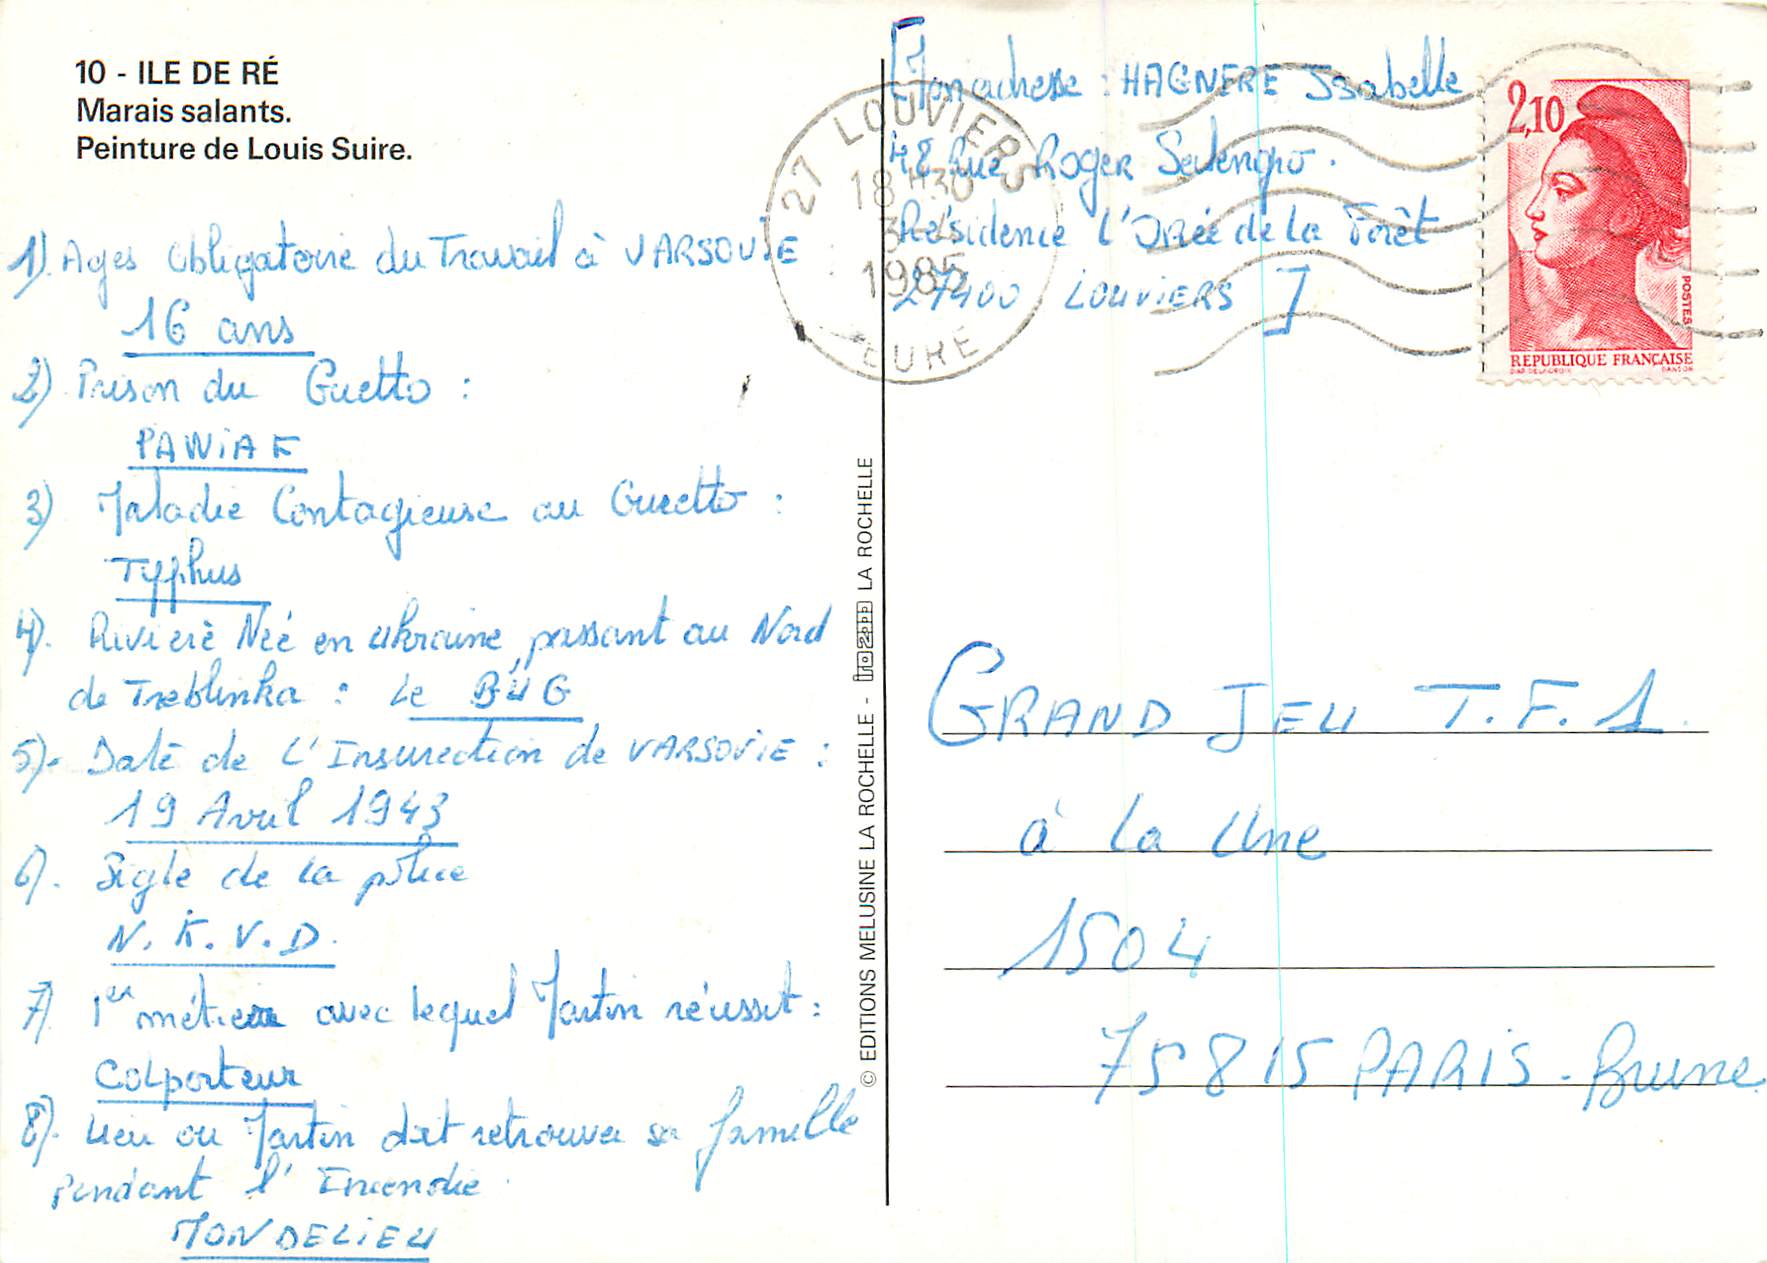 10 - ILE DE RÉ
Marais salants.
Peinture de Louis Suire.
1) Ages Obligatoire du Travail à VARSOVIE :
16 ans
2) Prison du Guetto :
PAWIAK
3) Maladie Contagieuse au Guetto :
Typhus
4). Rivierè Née en Ukraine, passant au Nord
de Treblinka : Le BUG
5)- Datè de L'Insurection de VARSOVIE :
19 Avril 1943
6). Sigle de la police
N.K.V.D.
7) 1er métier avec lequel Martin réussit :
Colporteur
8)- Lieu ou Martin doit retrouver sa famille
pendant l'Incendie
MONDELIEU
© EDITIONS MELUSINE LA ROCHELLE - LA ROCHELLE
[Monachesse : HAGNERE Isabelle
48 Rue Roger Salengro.
Résidence l'Orée de la Forêt
27400 LOUVIERS ]
27 LOUVIERS
18 H 30
3-
1985
EURE
2,10
POSTES
REPUBLIQUE FRANÇAISE
D'AP. DELACROIX
GANDON
GRAND JEU T.F.1.
à La Une
1504
75815 PARIS - Brune